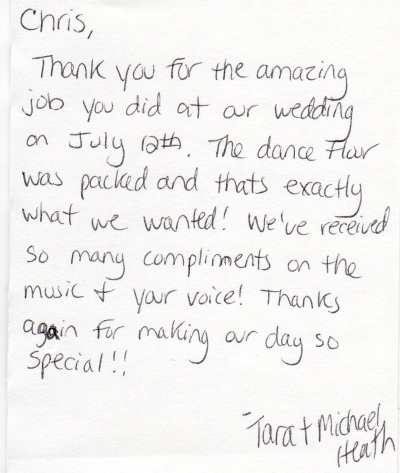 Chris,
Thank you for the amazing
job you did at our wedding
on July 12th. The dance floor
was packed and thats exactly
what we wanted! We've received
so many compliments on the
music & your voice! Thanks
again for making our day so
special!!
-Tara + Michael
Heath